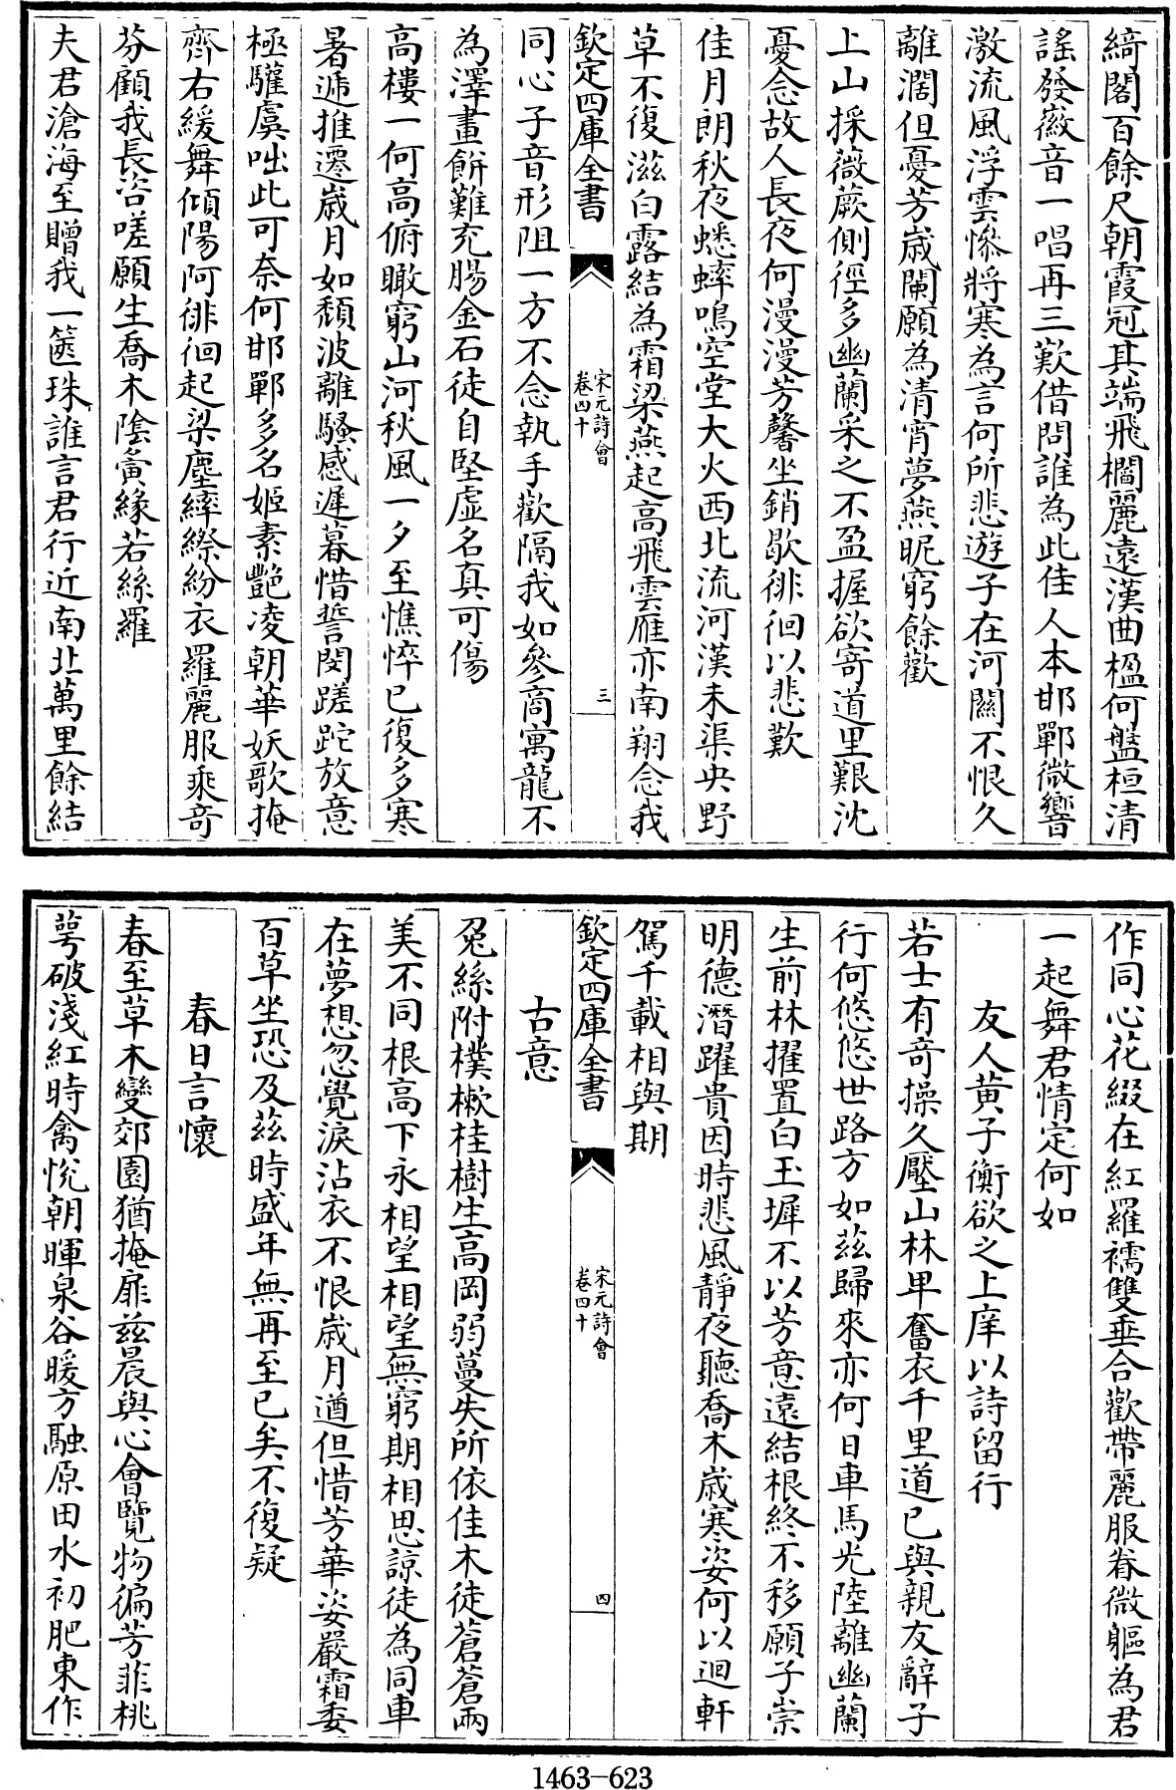 綺閣百餘尺朝霞冠其端飛櫩麗遠漢曲楹何盤桓清
謡發徽音一唱再三歎借問誰為此佳人本邯鄲微響
激流風浮雲慘將寒為言何所悲遊子在河關不恨久
離濶但憂芳嵗闌願為清宵夢燕昵窮餘歡
上山採薇蕨側徑多幽蘭采之不盈握欲寄道里艱沈
憂念故人長夜何漫漫芳馨坐銷歇徘徊以悲歎
佳月朗秋夜蟋蟀鳴空堂大火西北流河漢未渠央野
草不復滋白露結為霜梁燕起高飛雲雁亦南翔念我
欽定四庫全書
宋元詩會
卷四十
三
同心子音形阻一方不念執手歡隔我如參商寓龍不
為澤畫餅難充腸金石徒自堅虚名真可傷
高樓一何高俯瞰窮山河秋風一夕至憔悴已復多寒
暑遞推遷嵗月如頽波離騷感遲暮惜誓閔蹉跎放意
極驩虞咄此可奈何邯鄲多名姬素艶凌朝華妖歌掩
齊右緩舞傾陽阿徘徊起梁塵繂縩紛衣羅麗服乘竒
芬顧我長咨嗟願生喬木陰夤緣若絲羅
夫君滄海至贈我一篋珠誰言君行近南北萬里餘結
作同心花綴在紅羅襦雙垂合歡帶麗服眷微軀為君
一起舞君情定何如
友人黄子衡欲之上庠以詩留行
若士有竒操久壓山林卑奮衣千里道已與親友辭子
行何悠悠世路方如兹歸來亦何日車馬光陸離幽蘭
生前林擢置白玉墀不以芳意遠結根終不移願子崇
明德潛躍貴因時悲風靜夜聽喬木嵗寒姿何以迴軒
駕千載相與期
欽定四庫全書
宋元詩會
卷四十
四
古意
兔絲附樸樕桂樹生高岡弱蔓失所依佳木徒蒼蒼兩
美不同根高下永相望相望無窮期相思諒徒為同車
在夢想忽覺淚沾衣不恨嵗月遒但惜芳華姿嚴霜委
百草坐恐及兹時盛年無再至已矣不復疑
春日言懷
春至草木變郊園猶掩扉兹晨與心會覽物徧芳菲桃
萼破淺紅時禽恱朝暉泉谷暖方融原田水初肥東作
1463-623